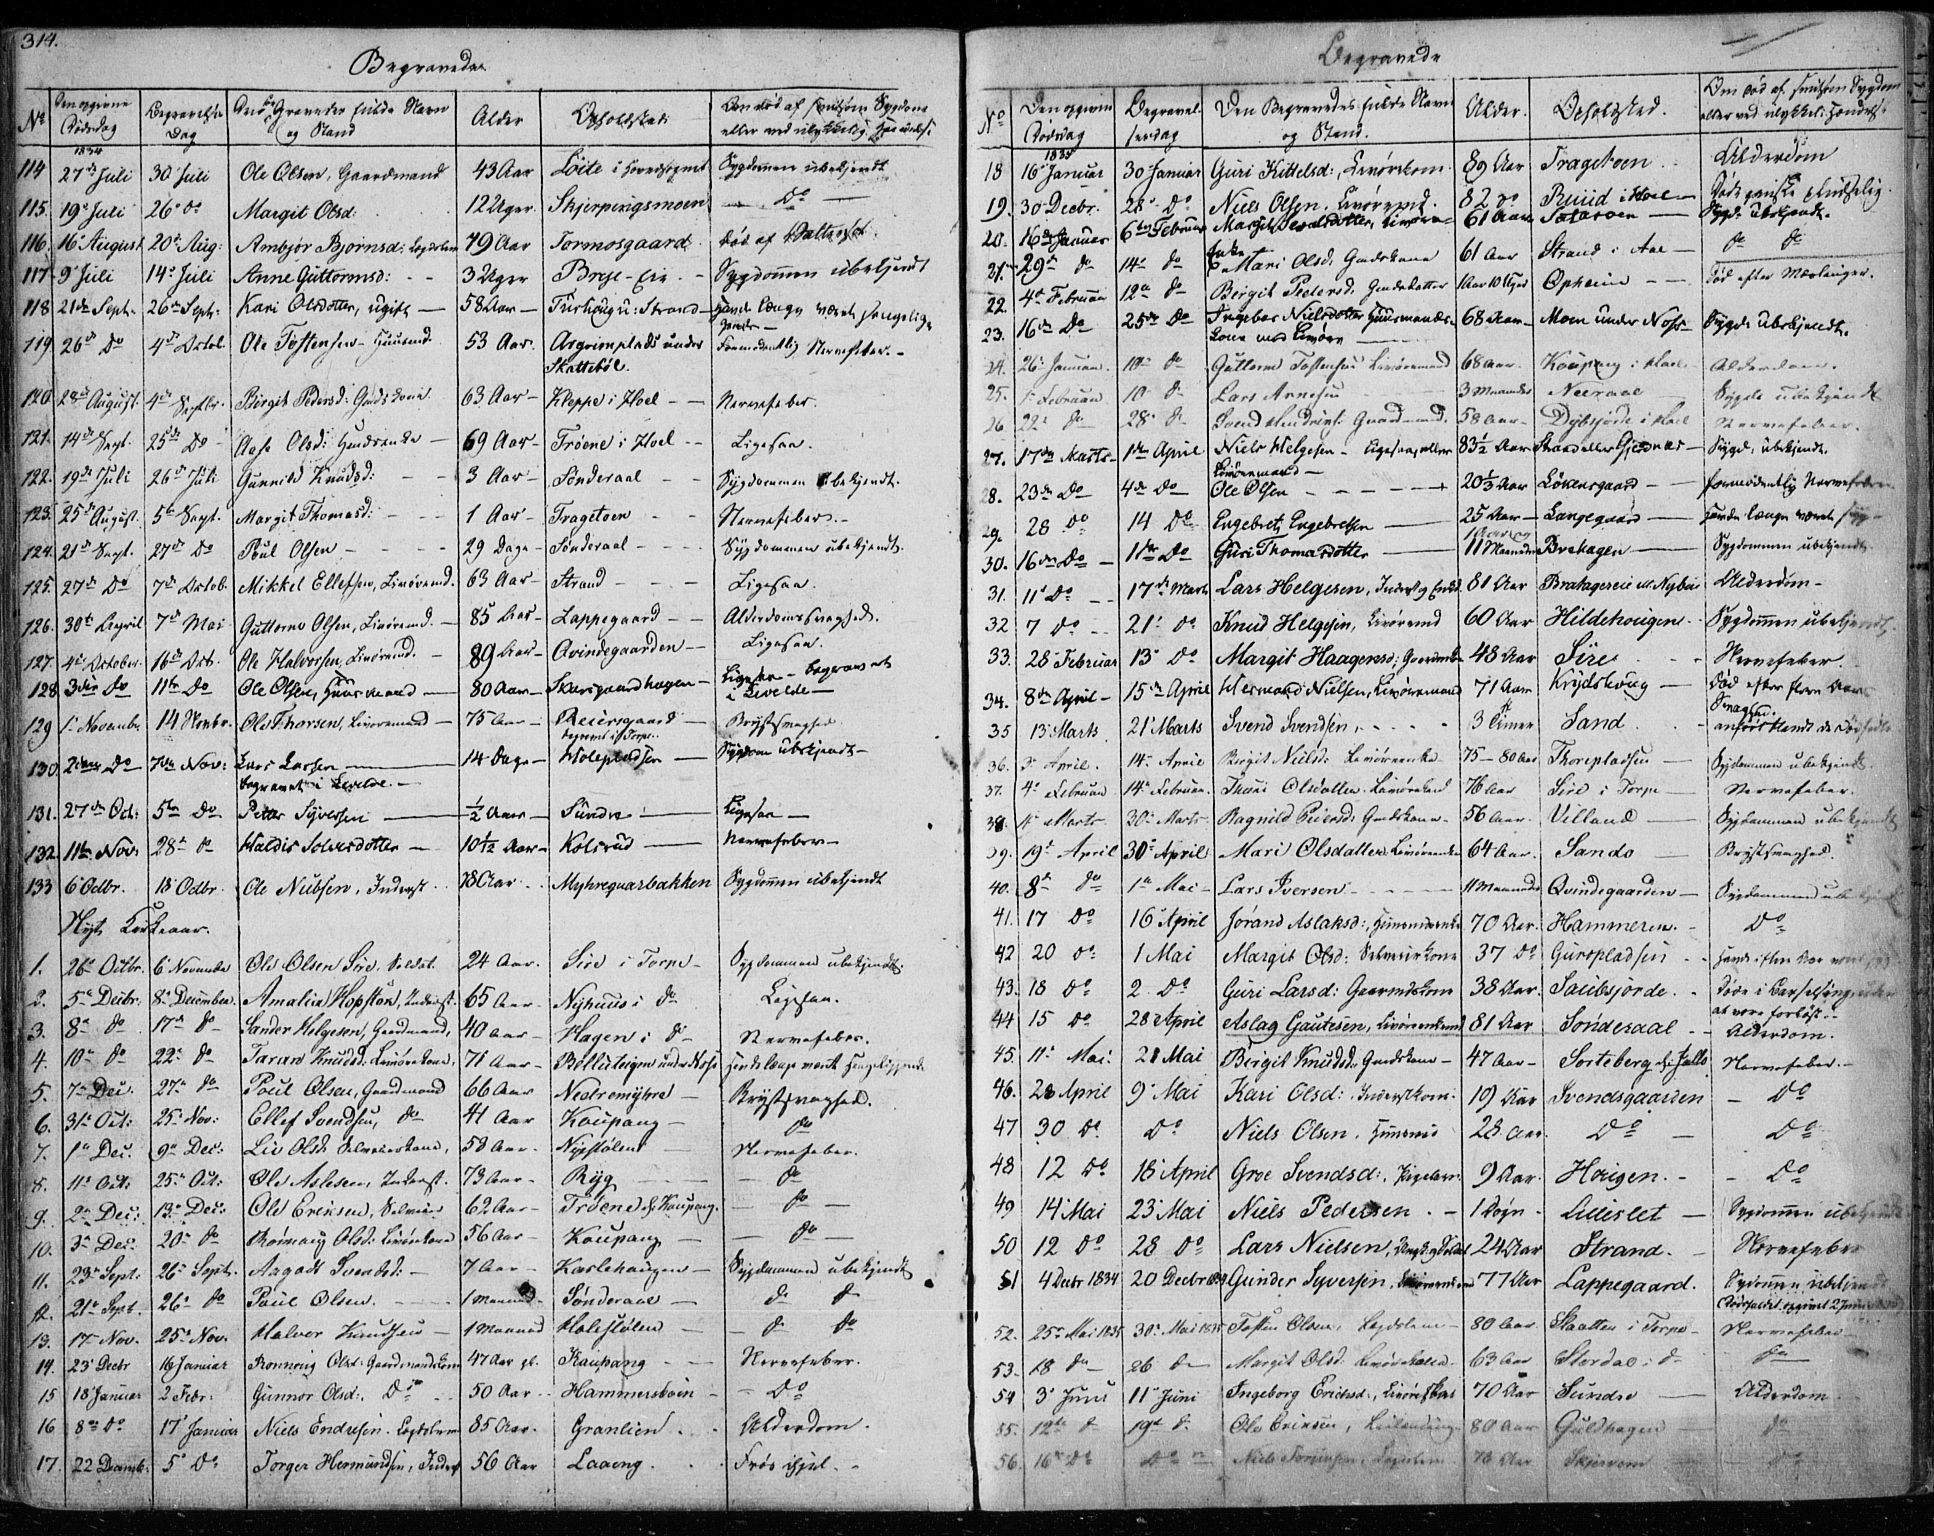 314.
Begravede
No | Den opgivne Dødsdag | Begravelses Dag | Den Begravedes fulde Navn og Stand | Alder | Opholdsted | Om død af smitsom Sygdom eller ved ulykkelig Hændelse
1834
114 27de Juli 30 Juli Ole Olsen, Gaardmand 43 Aar Løite i Hovedsognet Sygdommen ubekjendt
115. 19 Juli 26 do Margit Olsd: 12 Uger Skjerpingsmoen — Do —
116. 16 August 20 Aug: Ambjør Bjørnsd: Legdslem 79 Aar Tormosgaard død af
117. 9 Juli 14 Juli Anne Guttormsd: 3 Uger Breje-Eie Sygdommen ubekjendt
118 21de Sept. 26de Sept: Kari Olsdotter, ugift — 58 Aar Turhoug u: Strand — havde længe været sengeliggende
119 26de Do 4de Octob. Ole Tostensen Huusmd. 53 Aar. Argrimplads under Skattebøl. Formodentlig Nervefeber. —
120. 28de August. 4de Septbr. Birgit Pedersd: Gmdskone 63 Aar Kleppe i Hoel Nervefeber.
121. 14de Sept. 25de Do Aase Olsd: Gmdsenke 69 Aar Trøene i Hoel Ligesaa.
122. 19de Juli 26de Juli Gunnild Knudsd: 3 Aar Sønderaal Sygdommen ubekjendt.
123. 25de August. 5te Sept. Margit Thomasd: 1 Aar Tragetoen Nervefeber. —
124. 21de Sept. 27de Do Poul Olsen 29 Dage Sønderaal Sygdommen ubekjendt.
125. 27de Do 7de Octob. Mikkel Ellefsen, Livøremd. 63 Aar Strand Ligesaa.
126. 30te April 7de Mai Guttorm Olsen, Livøremd. 85 Aar Lappegaard Alderdomssvaghed.
127. 4de October. 16de Oct. Ole Halvorsen, Livøremd. 89 Aar Qvindegaarden Ligesaa.
128 3die Do 11te Do Ole Olsen, Huusmand 80 Aar Skarsgaardhagen Ligesaa — begravet i Leveld —
129 1 Novembr. 14 Novbr. Ole Thorsen, Livøremand 75 Aar Reiersgaard begravet i Torpe. Brystsvaghed.
130 2den Do 7de Nov: Lars Larsen begravet i Leveld — 14 Dage Holepladsen Sygdom ubekjendt —
131. 27de Oct: 5te Do Peter Syversen ½ Aar Sundre Ligesaa —
132. 11te Nov: 28de do Haldis Solvesdotter 10½ Aar Kolsrud Nervefeber —
133 6 Octbr. 18 Octbr. Ole Nubsen, Inderst 78 Aar Myhregaarbakken Sygdommen ubekjendt
Nyt Kirkeaar.
1. 26 Octbr. 6 Novembr Ole Olsen Sire, Soldat 24 Aar. Sire i Torpe Sygdommen ubekjendt
2. 5 Decbr: 8 December. Amalia Hopstøn, Inderst. 65 Aar Nyhuus i do Ligesaa.
3. 8de do 17de do Sander Helgesen, Gaardmand, 40 Aar Hagen i do Nervefeber.
4. 10 do 22 do Taran Knudsd. Livørekone 71 Aar Bølluteigen under Næs
5. 7de Dec. 27 do Poul Olsen, Gaardmand 66 Aar Nedremyhre Brystsvaghed.
6. 31 Oct: 25 Nov: Ellef Svendsen, do 41 Aar Kaupang — do
7. 1 Dec. 9 Dec: Liv Olsd. Selveierkone, 58 Aar. Nystølen Nervefeber.
8. 11 Oct: 25 Oct: Ole Aslesen, Inderst. 73 Aar Ryg do
9. 2 Dec: 13 Dec: Ole Ericsen, Selveier 62 Aar Trøene Kaupang. do
10. 3 Dec. 20 do Rønnaug Olsd: Livørekone 56 Aar Kaupang do
11. 23 Sept: 26 Sept. Aagodt Svendsd: 7 Aar Karlehaugen Sygdommen ubekjendt
12. 21 Sept. 26 do Poul Olsen. 1 Maaned Sønderaal do do
13. 17 Nov. 25 Nov. Halvor Knudsen 1 Maaned Holestølen do do
14. 23 Decbr 16 Januar Rønnoug Olsd: Gaardmandskone 47 Aar gl. Kaupang Nervefeber.
15 18 Januar 2 Febr: Gunnor Olsd:. Do 50 Aar Hammersbøen Do
16 8 Do 17 Januar Niels Endresen. Legdslem 85 Aar. Granlien Alderdom.
17. 22 Decemb: 5 Do Torger Hermundsen, Inderst 56 Aar Laaeng
Begravede
No | Den opgivne Dødsdag | Begravelsesdag | Den Begravedes fulde Navn og Stand. | Alder. | Opholdsted. | Om død af smitsom Sygdom eller ved ulykkel: Hændelse.
1835
18 16 Januar 30 Januar Guri Kittelsd:, Livørekone. 89 Aar Tragetoen Alderdom
19. 30 Decbr. 28 Do Niels Olsen, Livøremd. 82 do Ruud i Hoel
20. 16de Januar 6te Februar Margit 61 Aar Sygd: ubekjendt.
21. 29 do 14 do Mari Olsd. Gmdskone 61 Aar Strand i Aal do do
22. 4de Februar 12te do Birgit Pedersd. Gmdsdatter 1 Aar 10 Uger Opheim Død efter Mæslinger.
23. 16de Do 25de Do Ingebor Nielsdotter Huusmandskone med Livøre 68 Aar Moen under Næss Sygd: ubekjendt.
24. 26 Januar. do Guttorm Tostensen Livøremand 68 Aar. Kaupang i Hoel Alderdom.
25. 1 Februar 10 do Lars Arnesen 3 Maaneder Neeraal Sygd: ubekjendt
26 22 do 28 do Svend Gaardmd. 58 Aar Dybsjorde i Hoel Nervefeber.
27. 17de Marts 1ste April Niels Helgesen — Livøremand — 83½ Aar Strand eller Gjesnes Sygd: ubekjendt.
28. 23de Do 4de Do Ole Olsen 20⅓ Aar Løkensgaard formodentlig Nervefeber
29. 28 Do 14 Do Engebret Engebretsen 25 Aar Langegaard havde længe været syg
30. 16de Do 11te Do Guri Thomasdotter 1 Aar og 11 Maaneder Brehagen Sygdommen ubekjendt
31. 11 Do 17de Marts Lars Helgesen, Inderst 81 Aar Bratagereie u. Nybø Alderdom
32 7 Do 21 do Knud Helgesen, Livøremd 60 Aar Hildehougen Sygdommen ubekjendt,
33. 28 Februar 13 Do Margit Haagensd: Gaardmk. 48 Aar Sire Nervefeber.
34. 8de April 15de April Hermand Nielsen, Livøremand 71 Aar Krydshoug død efter flere Aars Svaghed.
35 13 Marts 21 Marts Svend Svendsen, 3 Timer Sand
36. April. 14 April Birgit Nielsd: Livøreenke 75-80 Aar Thorepladsen Sygdommen ubekjendt.
37. 4 Februar 14 Februar. Thuri Olsdatter Livørekone 76 Aar Sire i Torpe Nervefeber.
38. Marts 30 Marts Ragnild Reiersd. Gmdskone 56 Aar Villand Sygdommen ubekjendt
39. 19de April 30 April Mari Olsdatter Livøreenke 64 Aar. Sando Brystsvaghed.
40. 8de do 1ste Mai Lars Iversen 11 Maaneder Qvindegaarden Sygdommen ubekjendt
41. 17 Do 16 April Jørand Aslaksd:, Huusmdsenke 70 Aar. Hammeren. Do
42 20 Do 1 Mai Margit Olsd: Selveierkone 37 Do Guropladsen
43. 18 Do 2 Do Guri Larsd: Gaarmdskone 38 Aar. Saubsjorde. Døde i Barselseng uden at være forløst. —
44 15 Do 28 April Aslag Gautesen, Livøremand 81 Aar Sønderaal Alderdom.
45. 11 Mai 21 Mai Birgit Knudsd. Gmdskone 47 Aar Sorteberg Nervefeber. —
46. 28 April 9 Mai Kari Olsd: Inderstkone. 19 Aar Svendsgaarden Do
47 30 Do Do Niels Olsen. Huusmd 28 Aar. Do Do
48 12 Do 18 April Groe Svendsd:, Pigebarn. 9 Aar. Hougen. Do
49 14 Mai 23 Mai Niels Pedersen. 1 Døgn Lilleslet Sygdommen ubekjendt
50 12 Do 28 Do Lars Nielsen, Ungk. og Soldat 24 Aar Strand. Nervefeber
51 4 Decbr 1834 20 Decbr 1834 Gunder Syversen, Livøremand 77 Aar Lappegaard. Sygdommen ubekjendt
52. 25 Mai 1835 30 Mai 1835 Tosten Olsen, Legdslem 80 Aar. Skaatten i Torpe Nervefeber
53. 18 do 26 do Margit Olsd. Livørekone 63 Aar Stordal i do do
54 3 Juni 11 Juni Ingeborg Ericsd:, Livørekone 70 Aar Sundre Alderdom
55. 12te do 19de do Ole Ericsen, 80 Aar Guldhagen do
56. 16 Do Do Niels Legdslem 78 Aar Skjervem Do